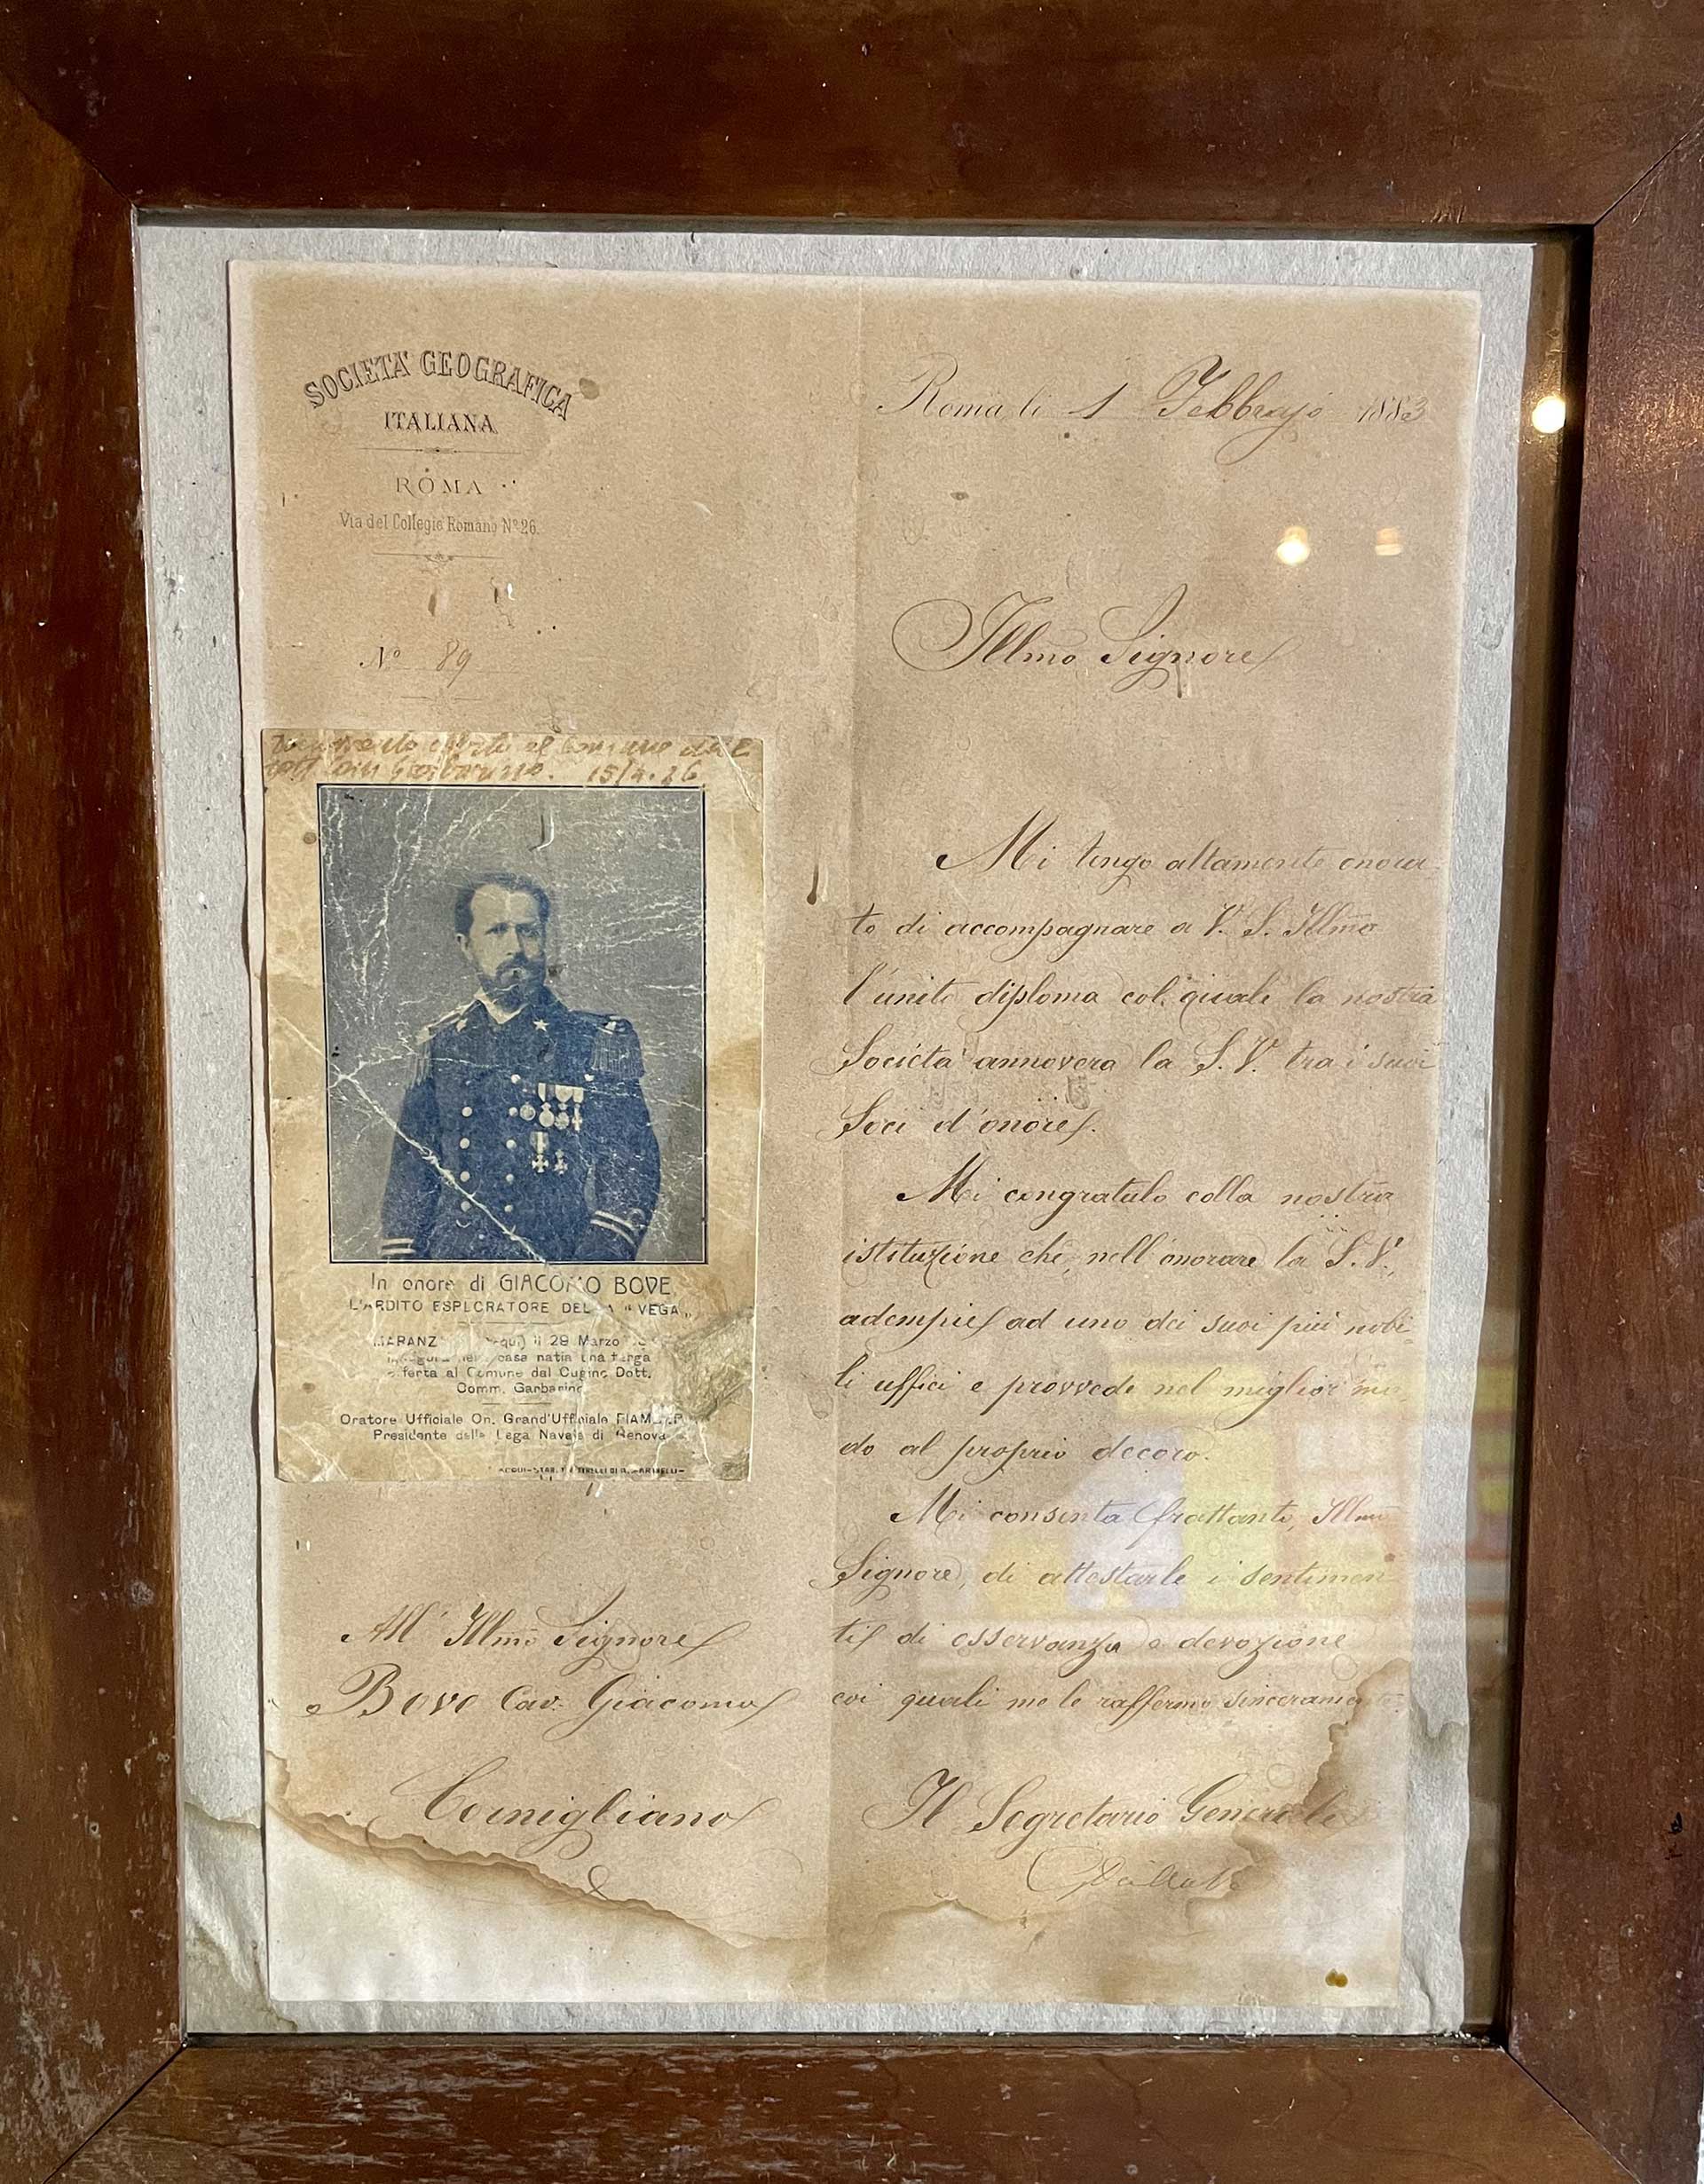 SOCIETÀ GEOGRAFICA
ITALIANA
ROMA
Via del Collegio Romano Nº 26.
Nº 89
al Comune
15/4.26
In onore di GIACOMO BOVE
L'ARDITO ESPLORATORE DELLA "VEGA"
il 29 Marzo
casa natia una targa
offerta al Comune dal Cugino Dott.
Comm. Garbarino
Oratore Ufficiale On. Grand'Ufficiale
Presidente della Lega Navale di Genova
All' Illmo Signore
Bove Cav. Giacomo
Cornigliano
Roma li 1 Febbrajo 1883
Illmo Signore
Mi tengo altamente onora
to di accompagnare a V. S. Illma
l'unito diploma col quale la nostra
Società annovera la S. V. tra i suoi
Soci d'onore.
Mi congratulo colla nostra
istituzione che, nell'onorare la S. V.,
adempie ad uno dei suoi più nobi
li uffici e provvede nel miglior mo
do al proprio decoro.
Mi consenta frattanto, Illmo
Signore, di attestarle i sentimen
ti di osservanza e devozione
coi quali me le raffermo sinceramente
Il Segretario Generale